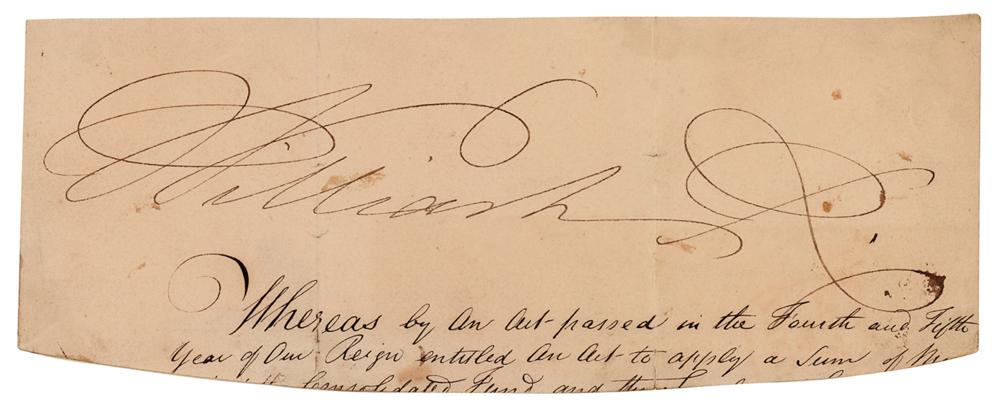 William R
Whereas by An Act passed in the Fourth and Fifth
Year of Our Reign entitled An Act to apply a Sum of
Consolidated Fund and